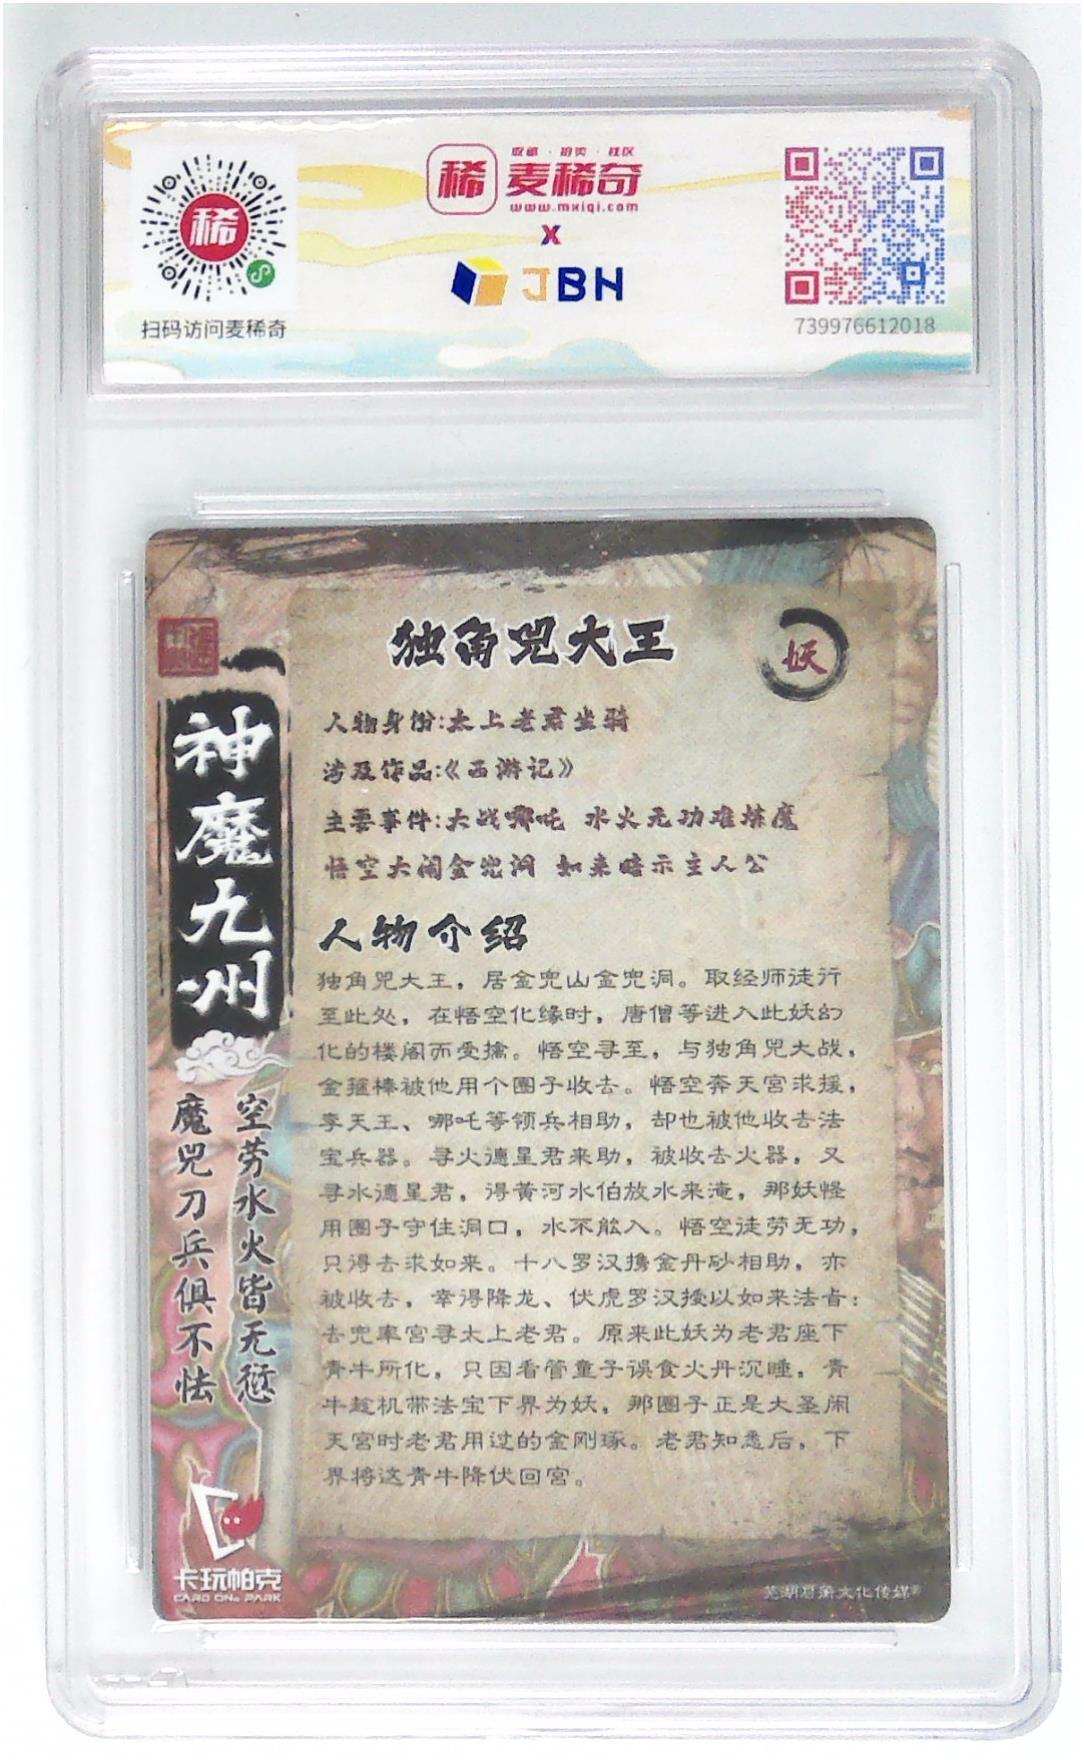 稀
收藏·拍卖·社区
麦稀奇
www.mxiqi.com
X
JBH
稀
扫码访问麦稀奇
739976612018
独角兕大王
妖
神魔九州
空劳水火皆无愆
魔兕刀兵俱不怯
人物身份:太上老君坐骑
涉及作品:《西游记》
主要事件:大战哪吒 水火无功难炼魔
悟空大闹金兜洞 如来暗示主人公
人物介绍
独角兕大王，居金兜山金兜洞。取经师徒行
至此处，在悟空化缘时，唐僧等进入此妖幻
化的楼阁而受擒。悟空寻至，与独角兕大战，
金箍棒被他用个圈子收去。悟空奔天宫求援，
李天王、哪吒等领兵相助，却也被他收去法
宝兵器。寻火德星君来助，被收去火器，又
寻水德星君，得黄河水伯放水来淹，那妖怪
用圈子守住洞口，水不能入。悟空徒劳无功，
只得去求如来。十八罗汉携金丹砂相助，亦
被收去，幸得降龙、伏虎罗汉授以如来法旨：
去兜率宫寻太上老君。原来此妖为老君座下
青牛所化，只因看管童子误食火丹沉睡，青
牛趁机带法宝下界为妖，那圈子正是大圣闹
天宫时老君用过的金刚琢。老君知悉后，下
界将这青牛降伏回宫。
卡玩帕克
CARD ONE PARK
芜湖君蘭文化传媒®